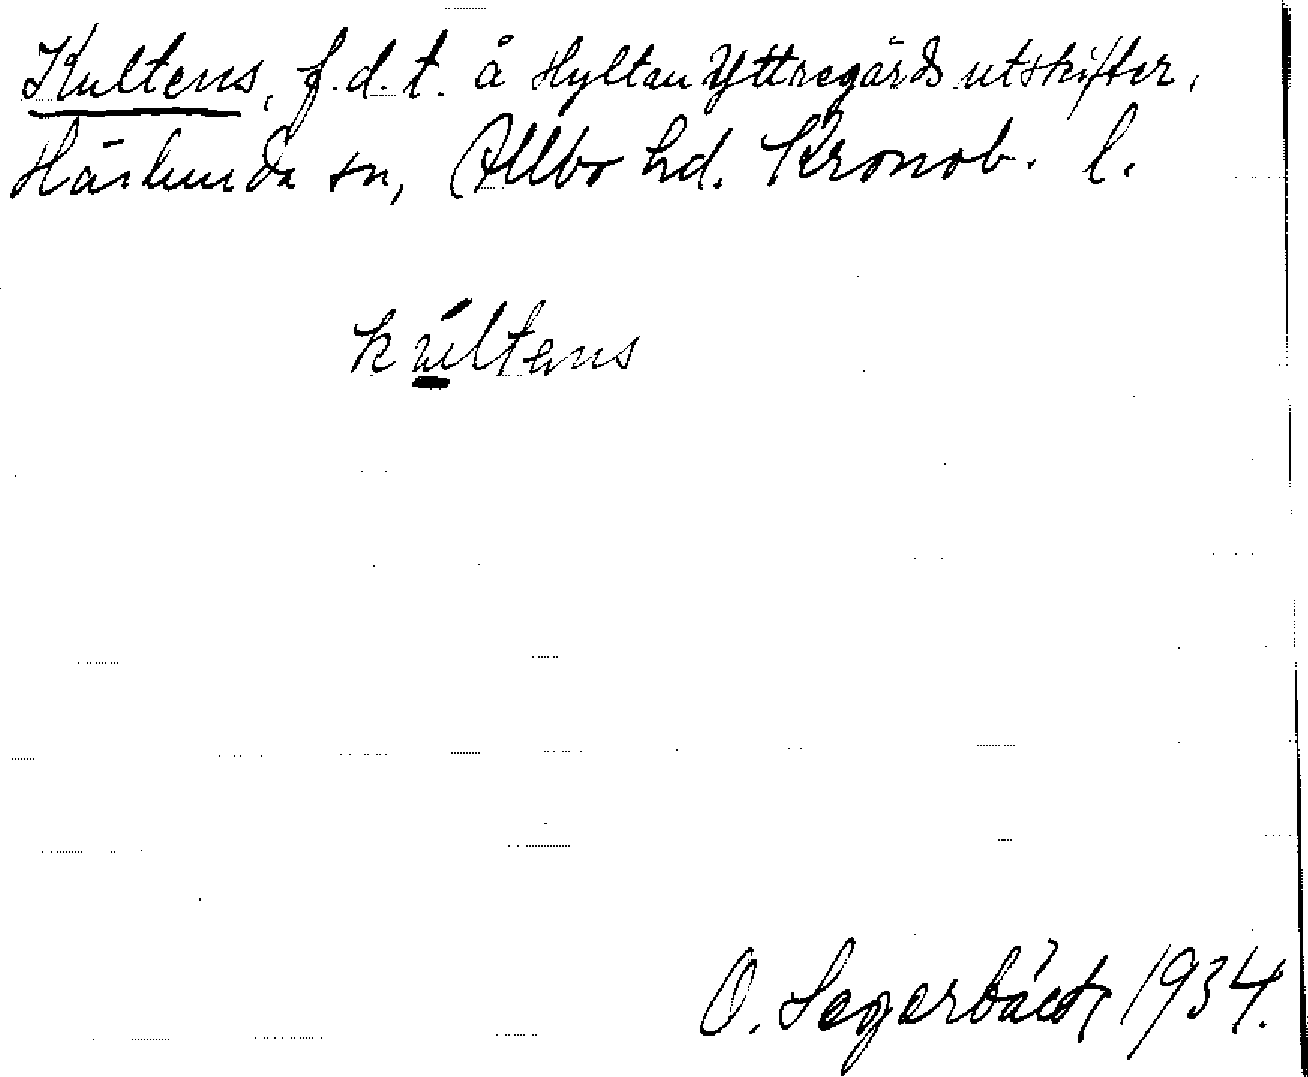 Kultens, f.d.t. å Hyltan Yttregårds utskifter,
Härlunda sn, Allbo hd. Kronob. l.
kúltens
O. Segerbäck 1934.